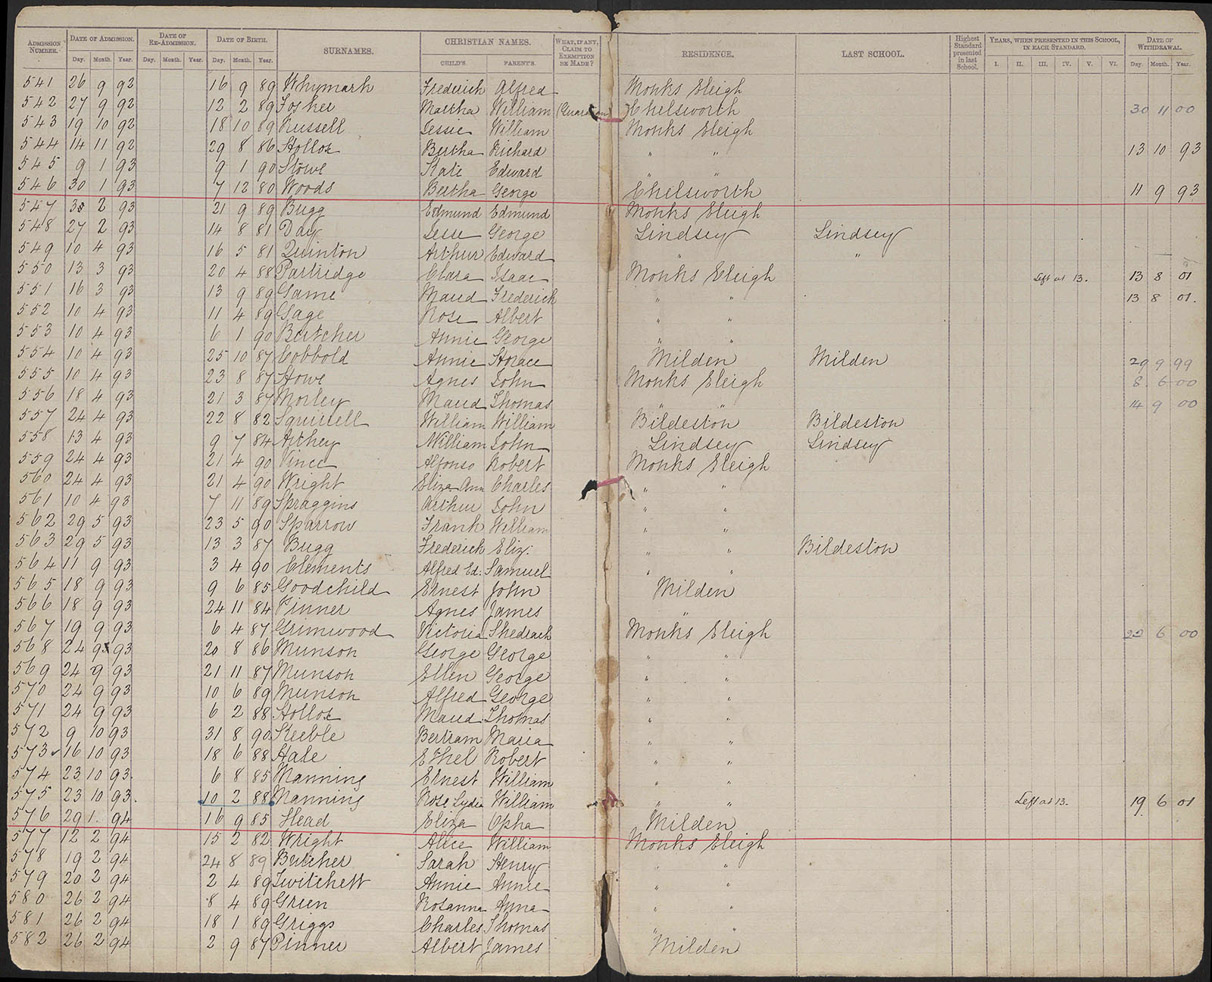 ADMISSION NUMBER. DATE OF ADMISSION. DATE OF RE-ADMISSION. DATE OF BIRTH. SURNAMES. CHRISTIAN NAMES. WHAT, IF ANY, CLAIM TO EXEMPTION BE MADE? RESIDENCE. LAST SCHOOL. Highest Standard presented in last School. YEARS, WHEN PRESENTED IN THIS SCHOOL, IN EACH STANDARD. DATE OF WITHDRAWAL.
Day. Month. Year. Day. Month. Year. Day. Month. Year. CHILD'S. PARENTS. I. II. III. IV. V. VI. Day. Month. Year.
541 26 9 92 16 9 89 Whymark Frederick Alfred Monks Eleigh
542 27 9 92 12 2 89 Martha William (Guardian) Chelsworth 30 11 00
543 19 10 92 18 10 89 Russell Jessie William Monks Eleigh
544 14 11 92 29 8 86 Hollox Bertha Richard " " 13 10 93
545 9 1 93 9 1 90 Stowe Kate Edward " "
546 30 1 93 7 12 80 Woods Bertha George Chelsworth 11 9 93
547 2 93 21 9 89 Bugg Edmund Edmund Monks Eleigh
548 27 2 93 14 8 81 Day Jesse George Lindsey Lindsey
549 10 4 93 16 5 81 Quinton Arthur Edward " "
550 13 3 93 20 4 88 Partridge Clara Isaac Monks Eleigh Left at 13. 13 8 01
551 16 3 93 13 9 89 Game Maud Frederick " " 13 8 01.
552 10 4 93 11 4 89 Gage Rose Albert " "
553 10 4 93 6 1 90 Butcher Annie George " "
554 10 4 93 25 10 87 Cobbold Annie Horace Milden Milden 29 9 99
555 10 4 93 23 8 87 Howe Agnes John Monks Eleigh 8 6 00
556 18 4 93 21 3 87 Morley Maud Thomas " " 14 9 00
557 24 4 93 22 8 82 Squirrell William William Bildeston Bildeston
558 13 4 93 9 7 84 Arthey William John Lindsey Lindsey
559 24 4 93 21 4 90 Vince Alfonso Robert Monks Eleigh
560 24 4 93 21 4 90 Wright Eliza Ann Charles " "
561 10 4 93 7 11 89 Spraggins Arthur John " "
562 29 5 93 23 5 90 Sparrow Frank William " "
563 29 5 93 13 3 87 Bugg Frederick Eliz: " " Bildeston
564 11 9 93 3 4 90 Clements Alfred Ed: Samuel " "
565 18 9 93 9 6 85 Goodchild Ernest John Milden
566 18 9 93 24 11 84 Pinner Agnes James "
567 19 9 93 6 4 87 Grimwood Victoria Shedrach Monks Eleigh 22 6 00
568 24 9 93 20 8 86 Munson George George " "
569 24 9 93 21 11 87 Munson Ellen George " "
570 24 9 93 10 6 89 Munson Alfred George " "
571 24 9 93 6 2 88 Hollox Maud Thomas " "
572 9 10 93 31 8 90 Keeble Bertram Maria " "
573 16 10 93 18 6 88 Hale Ethel Robert " "
574 23 10 93 6 8 85 Manning Ernest William " "
575 23 10 93 10 2 88 Manning Rose Lydia William " " Left at 13. 19 6 01
576 29 1 94 16 9 85 Head Eliza Milden 9.
577 12 2 94 15 2 82 Wright Alice William Monks Eleigh
578 19 2 94 24 8 89 Butcher Sarah Henry " "
579 20 2 94 2 4 89 Twitchett Annie Annie " "
580 26 2 94 8 4 89 Green Rosanna Anna " "
581 26 2 94 18 1 89 Griggs Charles Thomas " "
582 26 2 94 2 9 87 Pinner Albert James Milden